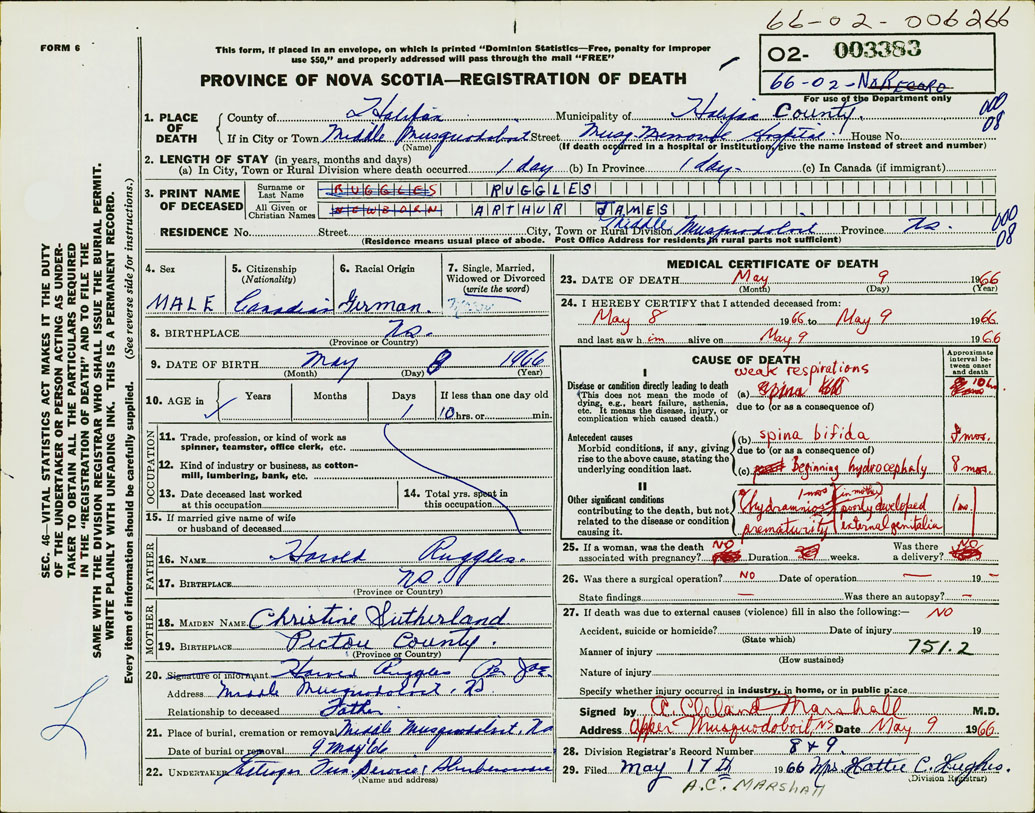 66-02-006266
FORM 6
This form, if placed in an envelope, on which is printed "Dominion Statistics—Free, penalty for improper
use $50," and properly addressed will pass through the mail "FREE"
PROVINCE OF NOVA SCOTIA—REGISTRATION OF DEATH
02- 003383
66-02-No RECORD
For use of the Department only
000
08
1. PLACE OF DEATH
County of Halifax Municipality of Halifax County.
If in City or Town Middle Musquodoboit Street Musq. Memorial Hospital. House No.
(Name) (If death occurred in a hospital or institution, give the name instead of street and number)
2. LENGTH OF STAY (in years, months and days)
(a) In City, Town or Rural Division where death occurred 1 day (b) In Province 1 day- (c) In Canada (if immigrant)
3. PRINT NAME OF DECEASED
Surname or Last Name RUGGLES RUGGLES
All Given or Christian Names NEWBORN ARTHUR JAMES
RESIDENCE No. Street City, Town or Rural Division Middle Musquodoboit Province NS.
(Residence means usual place of abode. Post Office Address for residents in rural parts not sufficient)
000
08
SEC. 46—VITAL STATISTICS ACT MAKES IT THE DUTY
OF THE UNDERTAKER OR PERSON ACTING AS UNDER-
TAKER TO OBTAIN ALL THE PARTICULARS REQUIRED
IN THE "REGISTRATION OF DEATH" AND TO FILE THE
SAME WITH THE DIVISION REGISTRAR WHO SHALL ISSUE THE BURIAL PERMIT.
WRITE PLAINLY WITH UNFADING INK. THIS IS A PERMANENT RECORD.
Every item of information should be carefully supplied. (See reverse side for instructions.)
4. Sex
MALE
5. Citizenship
(Nationality)
Canadian
6. Racial Origin
German
7. Single, Married,
Widowed or Divorced
(write the word)
8. BIRTHPLACE NS.
(Province or Country)
9. DATE OF BIRTH May 8 1966
(Month) (Day) (Year)
10. AGE in Years Months Days 1 If less than one day old
10 hrs. or min.
OCCUPATION
11. Trade, profession, or kind of work as
spinner, teamster, office clerk, etc.
12. Kind of industry or business, as cotton-
mill, lumbering, bank, etc.
13. Date deceased last worked
at this occupation
14. Total yrs. spent in
this occupation
15. If married give name of wife
or husband of deceased
FATHER
16. NAME Harold Ruggles.
17. BIRTHPLACE NS.
(Province or Country)
MOTHER
18. MAIDEN NAME Christine Sutherland
19. BIRTHPLACE Pictou County.
(Province or Country)
20. Signature of informant Harold Ruggles Per
Address Middle Musquodoboit, NS
Relationship to deceased Father
21. Place of burial, cremation or removal Middle Musquodoboit, NS
Date of burial or removal 9 May/66
22. UNDERTAKER Fun. Service,
(Name and address)
MEDICAL CERTIFICATE OF DEATH
23. DATE OF DEATH May 9 1966
(Month) (Day) (Year)
24. I HEREBY CERTIFY that I attended deceased from:
May 8 1966 to May 9 1966
and last saw him alive on May 9 1966
CAUSE OF DEATH
Approximate interval between onset and death
I
weak respirations
Disease or condition directly leading to death
(This does not mean the mode of
dying, e.g., heart failure, asthenia,
etc. It means the disease, injury, or
complication which caused death.)
(a) spina 10 hr.
due to (or as a consequence of)
Antecedent causes
Morbid conditions, if any, giving
rise to the above cause, stating the
underlying condition last.
(b) spina bifida 8 mos.
due to (or as a consequence of)
(c) Beginning hydrocephaly 8 mos.
II
Other significant conditions
contributing to the death, but not
related to the disease or condition
causing it.
1 mos (in mother)
hydramnios poorly developed 1 m.
prematurity external genitalia
25. If a woman, was the death
associated with pregnancy? NO Duration weeks. Was there
a delivery? NO
26. Was there a surgical operation? NO Date of operation — 19 -
State findings — Was there an autopsy? -
27. If death was due to external causes (violence) fill in also the following:— NO
Accident, suicide or homicide? Date of injury 19
(State which)
Manner of injury 751.2
(How sustained)
Nature of injury
Specify whether injury occurred in industry, in home, or in public place
Signed by A. Cleland Marshall M.D.
Address Upper Musquodoboit, NS Date May 9 1966
28. Division Registrar's Record Number 849.
29. Filed May 17th 1966 Mrs. Hattie C. Hughes.
(Division Registrar)
A.C. MARSHALL